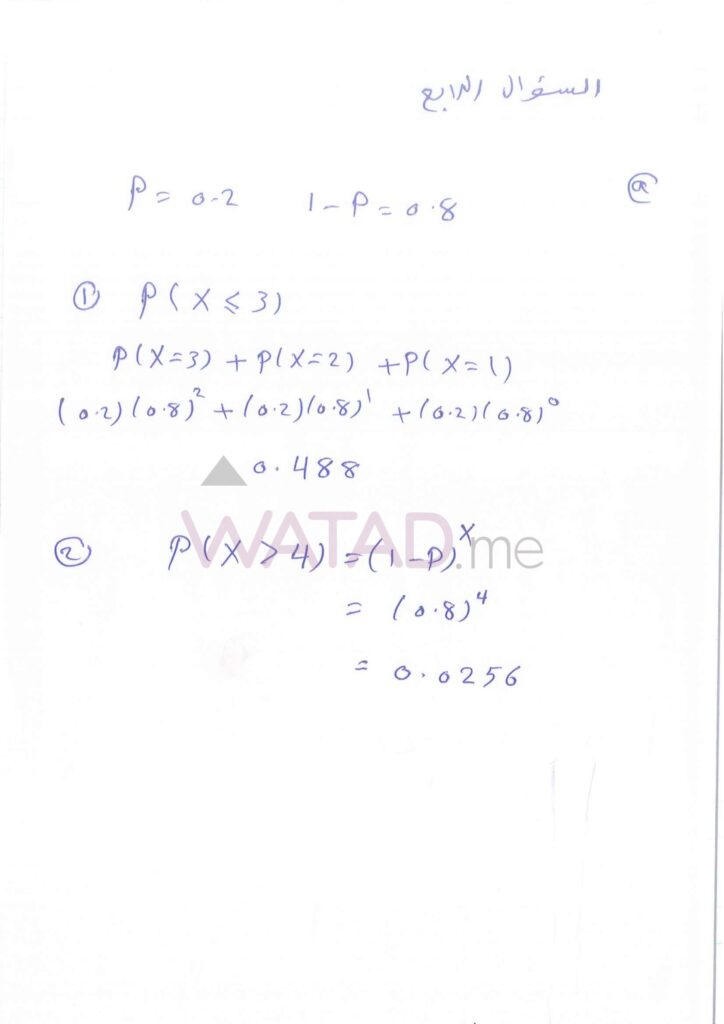 السؤال الرابع
P = 0.2 1 - P = 0.8 ⓐ
① P( X ≤ 3)
P(X=3) + P(X=2) + P( X = 1)
(0.2)(0.8)² + (0.2)(0.8)¹ + (0.2)(0.8)⁰
0.488
WATAD.me
② P(X > 4) = (1 - P)ˣ
= (0.8)⁴
= 0.0256